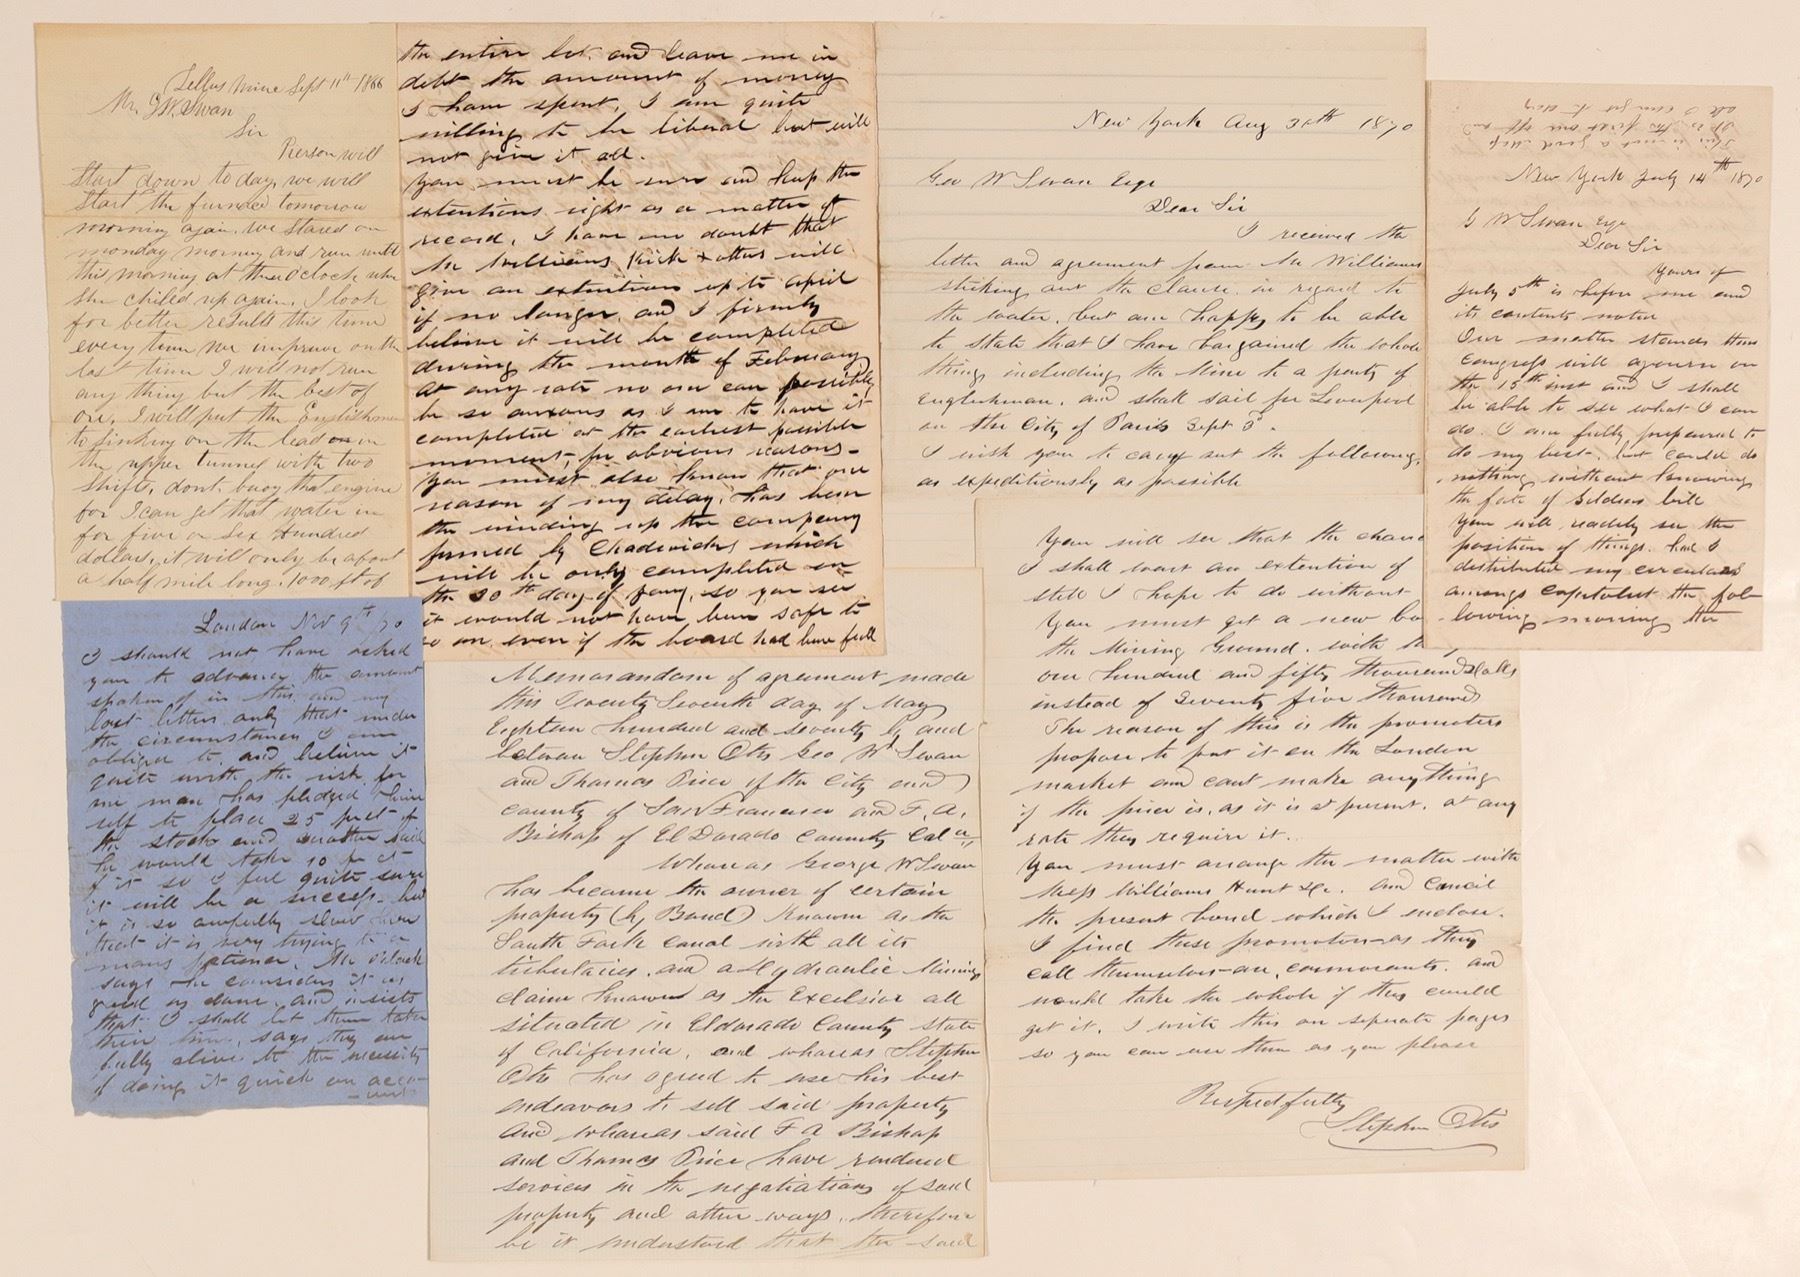 Tellus Mine Sept 11th 1866
Mr. G W. Swan
Sir
Pierson will
Start down to day, we will
Start the furnace tomorrow
morning again. We Stared on
monday morning and run until
this morning at three o'clock when
She chiled up again. I look
for better results this time
every time we improve on the
last time I will not run
any thing but the best of
ore, I will put the Englishmen
to sinking on the lead on in
the upper tunnel with two
Shifts, dont buoy that engine
for I can get that water in
for five or Six Hundred
dollars, it will only be about
a half mile long. 1000 ft of
the entire lot and leave me in
debt the amount of money
I have spent, I am quite
willing to be liberal but will
not give it all.
You must be sure and keep the
extentions right as a matter of
record, I have no doubt that
Mr Williams, Kirk & others will
give an extention up to april
if no longer and I firmly
believe it will be completed
during the month of February
At any rate no one can possibly
be so anxious as I am to have it
completed at the earliest possible
moment, for obvious reasons-
You must also know that one
reason of my delay, has been
the winding up the company
formed by Chadwick, which
will be only completed on
the 30th day of Jany, so you see
it would not have been safe to
go on, even if the board had been full
New York Aug 30th 1870
Geo W Swan Esqe
Dear Sir
I received the
letter and agreement from Mr Williams
striking out the clause in regard to
the water, but am happy to be able
to state that I have bargained the whole
thing including the Mine to a party of
Englishman, and shall sail for Liverpool
on the City of Paris Sept 3.
I wish you to carry out the following,
as expeditiously as possible
You will see that the chance
I shall want an extention of
still I hope to do without
You must get a new bo
the Mining Ground. with th
one hundred and fifty thousand Dolls
instead of Seventy five thousand
The reason of this is the promoters
propose to put it on the London
market and cant make anything
if the price is, as it is at present. at any
rate they require it.
You must arrange the matter with
Mess Williams Hunt &c. and Cancil
the present bond which I enclose.
I find these promoters as they
call themselves are, cormorants. and
would take the whole if they could
get it. I write this on seperate pages
so you can use them as you please
Respectfully
Stephen Otis
This is not a good slip
It is the first one off and
all I can get to day
New York July 14th 1870
G W Swan Esqe
Dear Sir
Yours of
July 5th is before me and
its contents noted
Our matter stands thus
Congress will ajourn on
the 15th inst and I shall
be able to see what I can
do. I am fully prepared to
do my best, but could do
nothing without knowing
the fate of bill
You will readily see the
position of things. had I
distributed my circulars
amongs Capitalist the fol-
lowing morning the
London Nov 9th /70
I should not have asked
you to advance the amount
spoken of in this and my
last letters only that under
the circumstances I am
obliged to, and believe it
quite worth the risk for
me man has pledged him
self to place 25 pr ct of
the stock and another said
he would take 10 pr ct
of it so I feel quite sure
it will be a success- but
it is so awfully slow here
that it is very trying to a
mans patience, Mr
says he considers it as
good as done, and insists
that I shall let them take
their time, says they are
fully alive to the necessity
of doing it quick on acco-
-unt
Memorandom of agreement made
this Twenty Seventh day of May
Eighteen hundred and seventy by and
between Stephen Otis Geo W Swan
and Thomas Price of the City and
County of San Francisco and F. A.
Bishop of El Dorado County Cala,
Whereas George W Swan
has became the owner of certain
property (by Bond) Known as the
South Fork Canal with all its
tributaries, and a Hydraulic Mining
claim known as the Excelsior all
situated in Eldorado County state
of California, and whereas Stephen
Otis has agreed to use his best
endeavors to sell said property
And whereas said F A Bishop
and Thomas Price have rendered
services in the negotiations of said
property and other ways, therefore
be it understood that the said